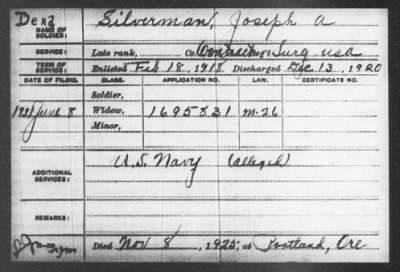 Dead
NAME OF SOLDIER: Silverman, Joseph A
SERVICE: Late rank, Co. Reg't Surg USA
TERM OF SERVICE: Enlisted Feb 18, 1918 Discharged Dec 13, 1920
DATE OF FILING. CLASS. APPLICATION NO. LAW. CERTIFICATE NO.
Soldier,
June 8 Widow, 1695831 M-26
Minor,
ADDITIONAL SERVICES: U.S. Navy (alleged)
REMARKS:
Died Nov 8, 1925, at Portland, Ore